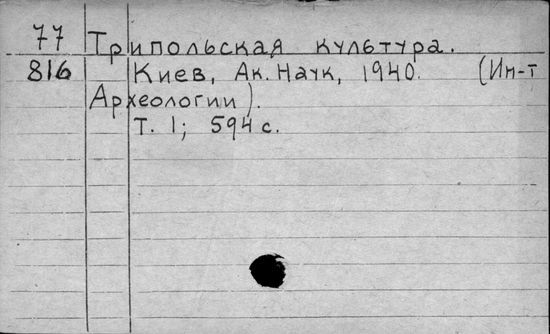 77 Трипольская культура.
816 Киев, Ак. Наук, 1940. (Ин-т
Археологии).
Т. 1; 594 с.